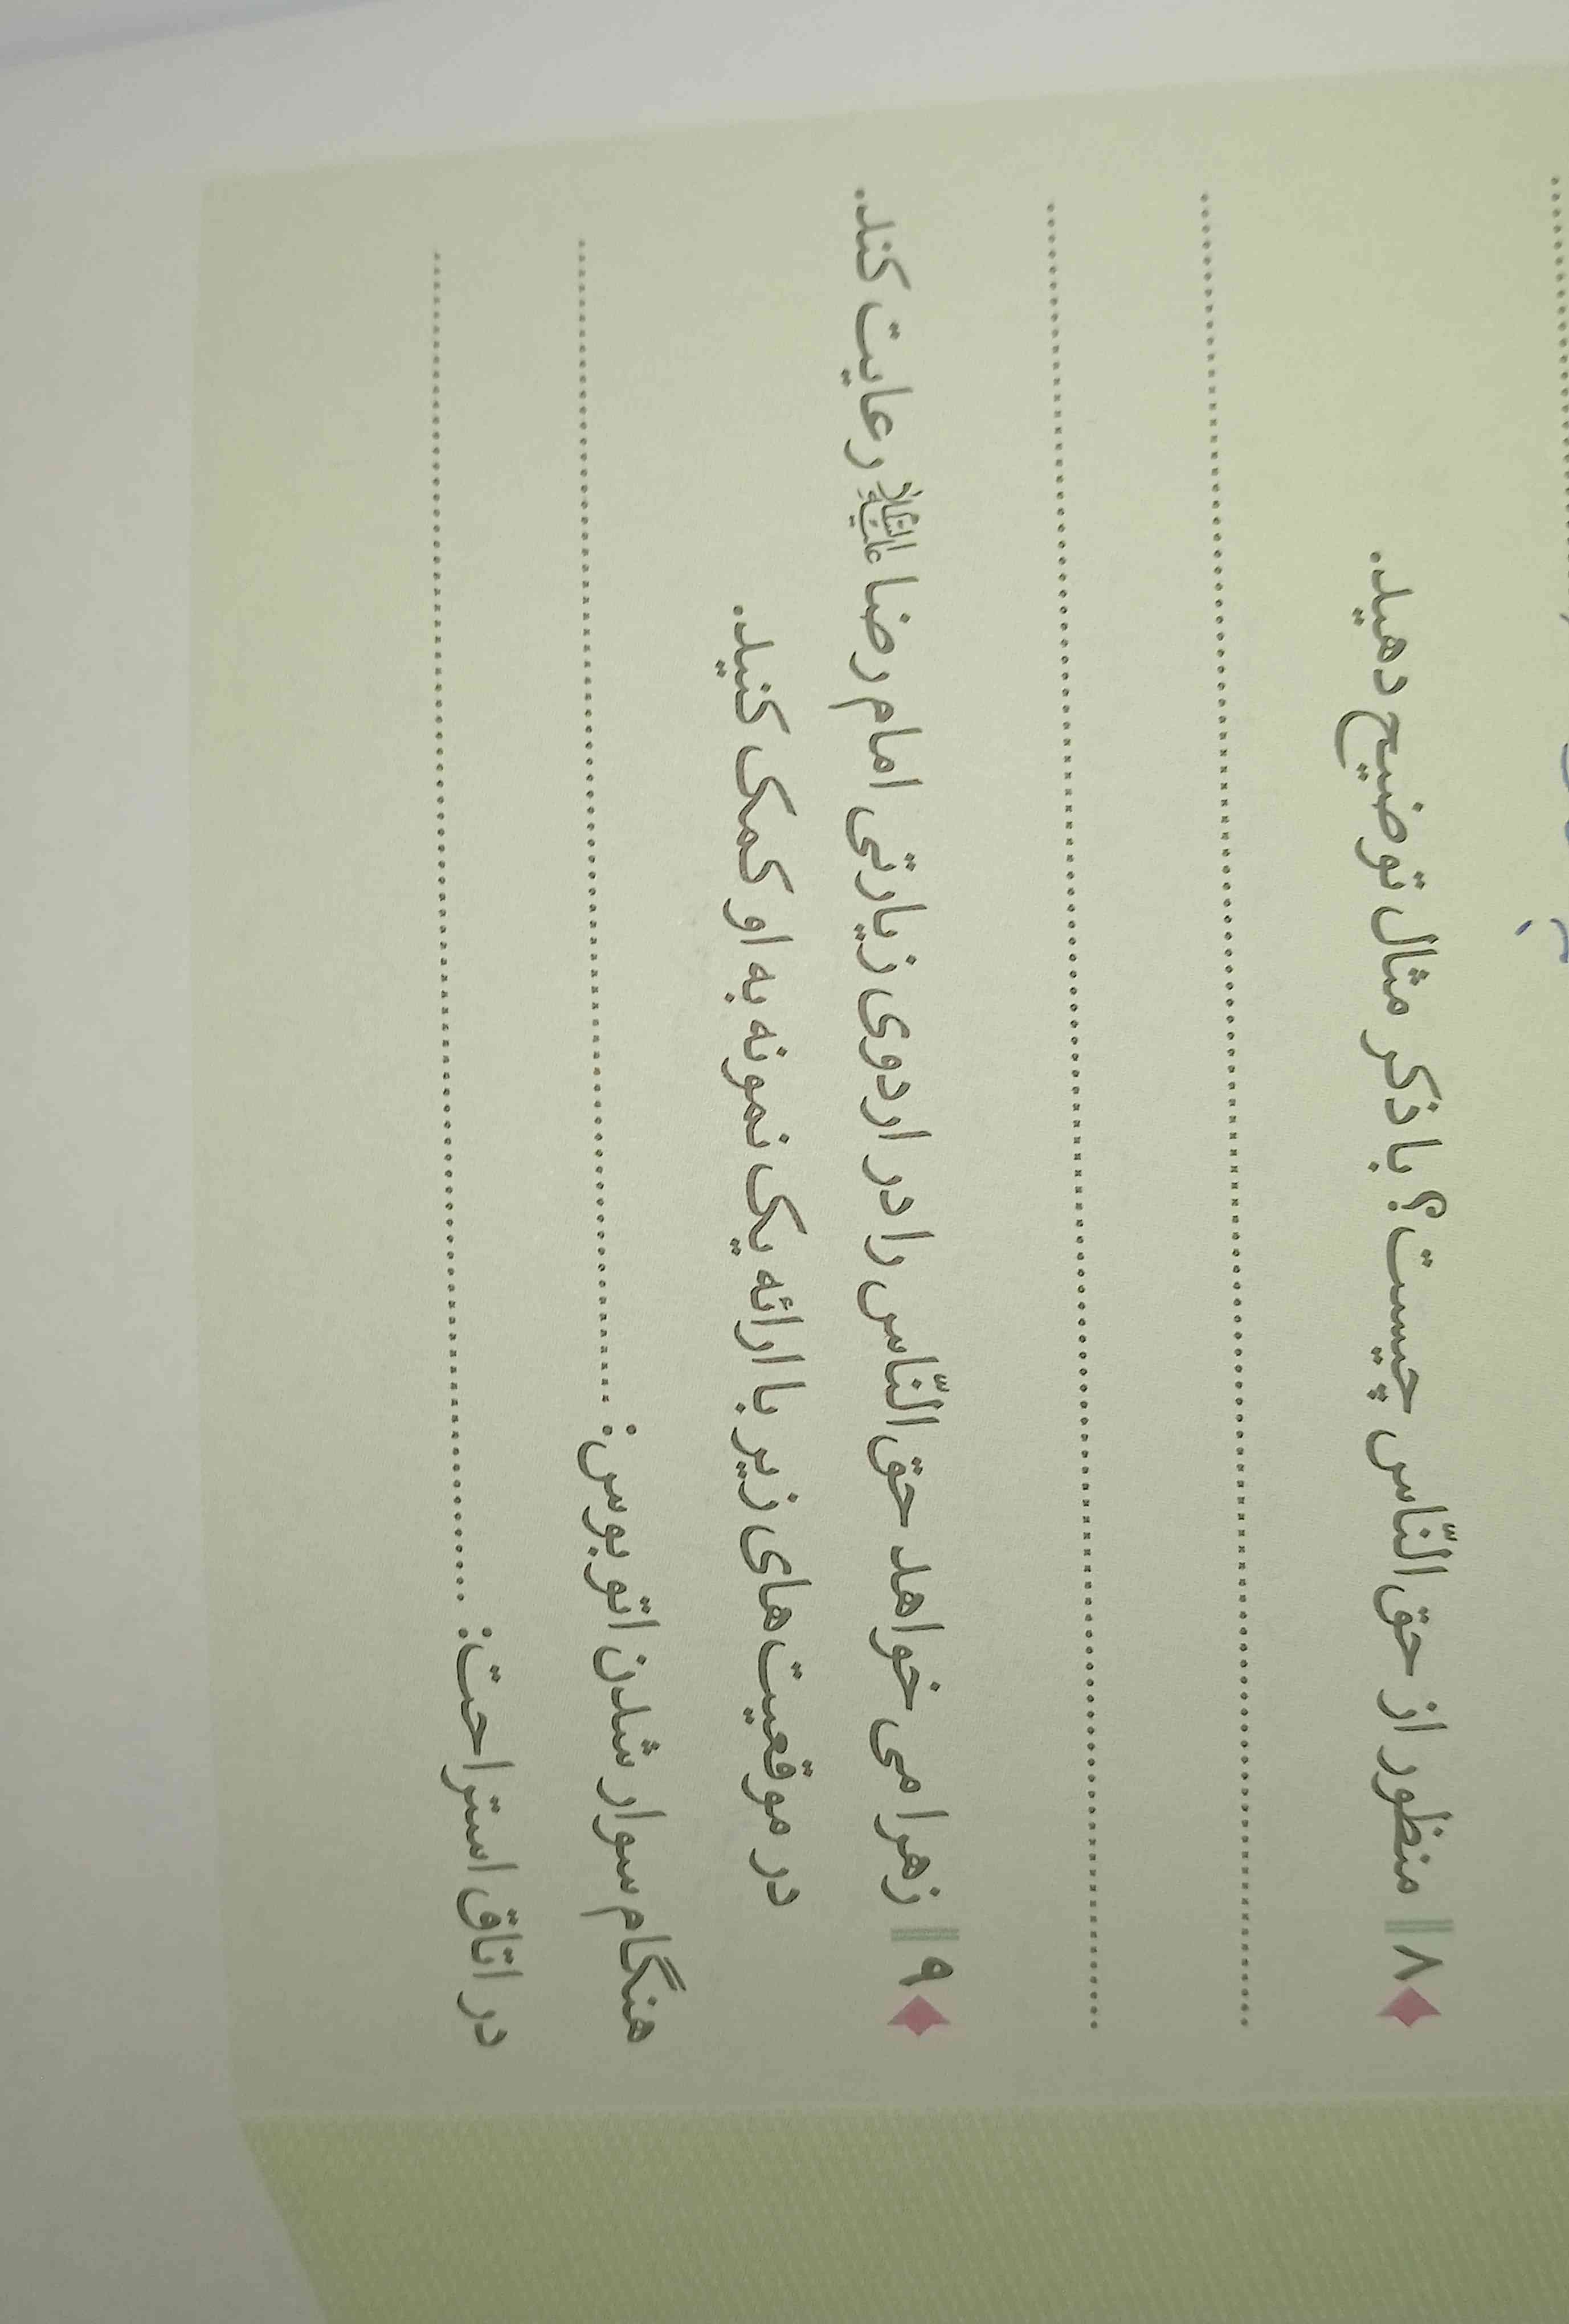 ۸ || منظور از حق النّاس چیست؟ با ذکر مثال توضیح دهید.
........................................................................
........................................................................
۹ || زهرا می خواهد حق النّاس را در اردوی زیارتی امام رضا علیه السلام رعایت کند.
در موقعیت های زیر با ارائه یک نمونه به او کمک کنید.
هنگام سوار شدن اتوبوس: ........................................................................
در اتاق استراحت: ........................................................................